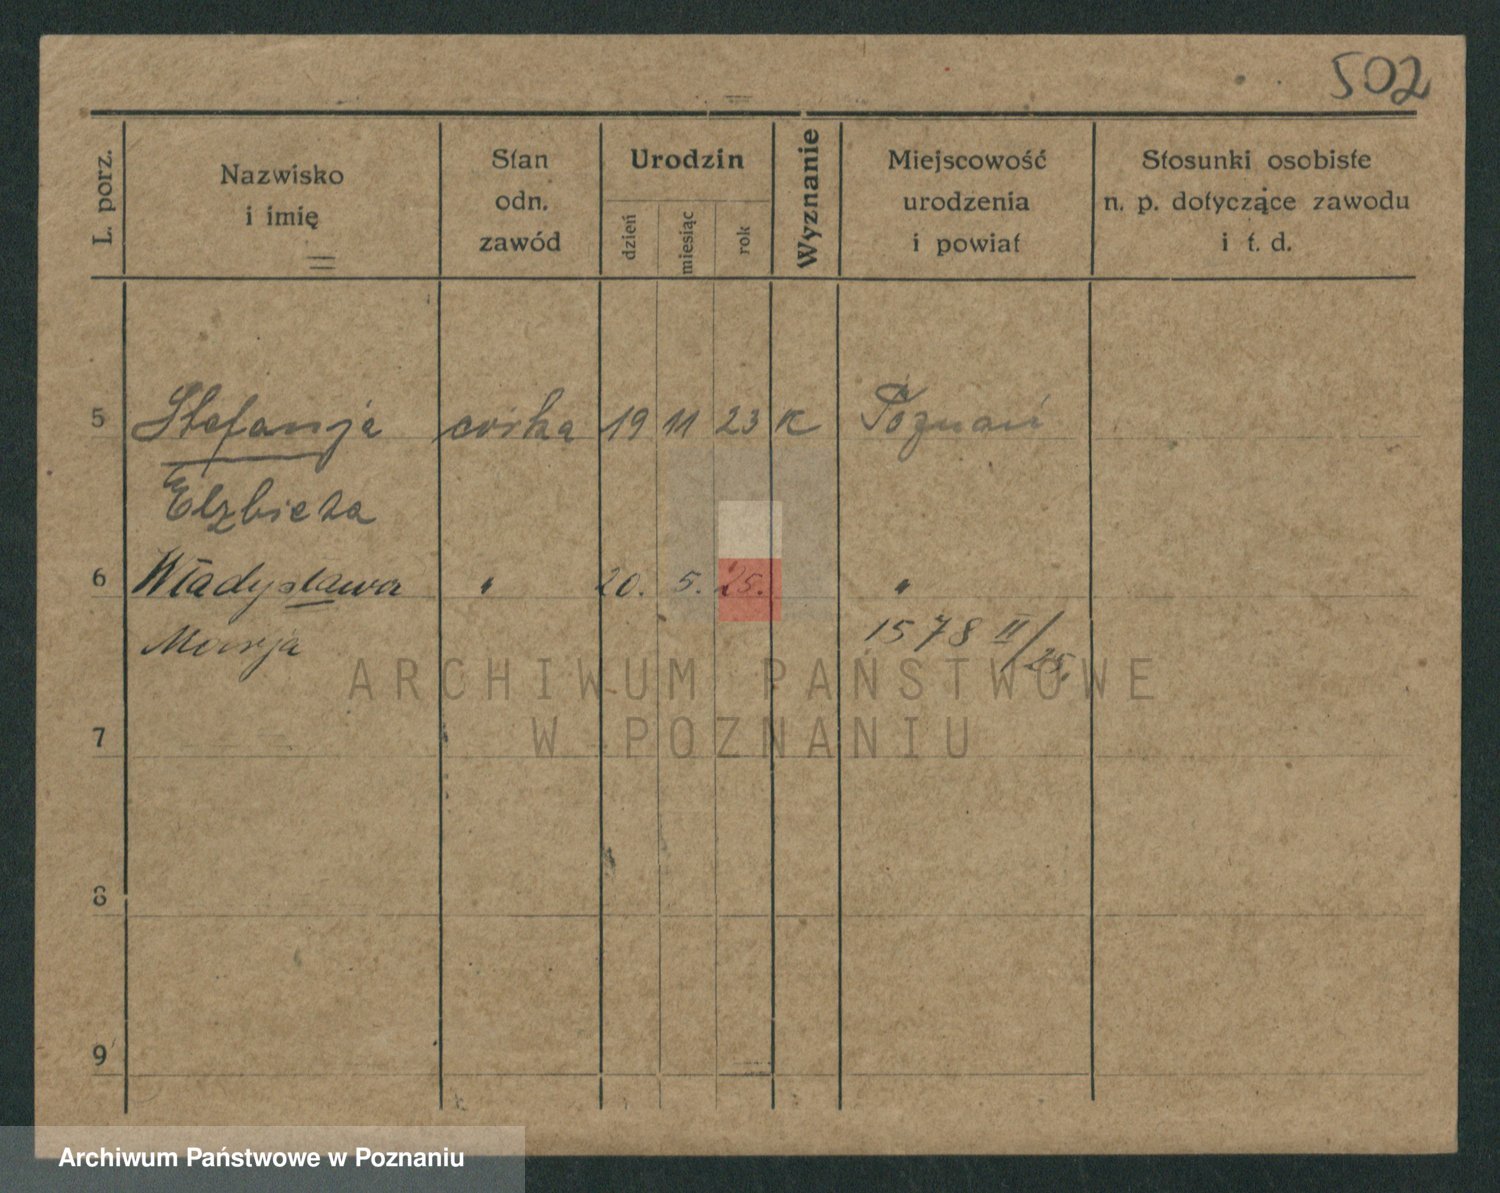 502
L. porz.
Nazwisko
i imię
Stan
odn.
zawód
Urodzin
dzień
miesiąc
rok
Wyznanie
Miejscowość
urodzenia
i powiat
Stosunki osobiste
n. p. dotyczące zawodu
i t. d.
5 Stefanja córka 19 11 23 K Poznań
Elzbieta
6 Władysława " 20. 5. 25. "
Marja 1578 II/25.
7
8
9
ARCHIWUM PAŃSTWOWE
W POZNANIU
Archiwum Państwowe w Poznaniu